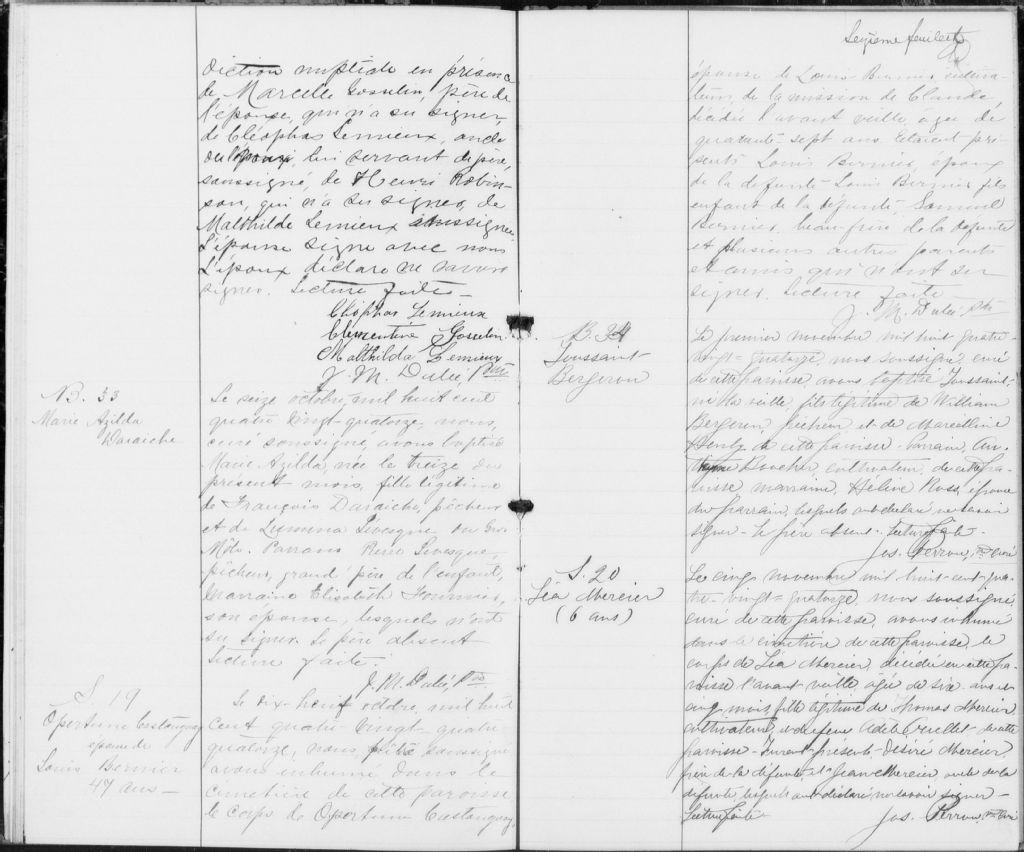 diction nuptiale en présence
de Marcelle Gosselin, père de
l'épouse, qui n'a su signer,
de Cléophas Lemieux, oncle
de l'époux lui servant de père,
soussigné, de Henri Robin-
son, qui n'a su signer, de
Malthilde Lemieux soussignée
L'épouse signe avec nous
L'époux déclare ne savoir
signer. Lecture faite —
Cléophas Lemieux
Clementine Gosselin
Mathilda Lemieux
J. M. Dulié, Ptre
B. 33
Marie Azilda
Daraiche
Le seize octobre, mil huit cent
quatre vingt-quatorze, nous,
curé soussigné, avons baptisé
Marie Azilda, née le treize du
présent mois, fille légitime
de François Daraiche, pêcheur
et de Lumena Levesque, du Gros
Môle. Parrain Levesque,
pêcheur, grand'père de l'enfant,
Marraine Elisabeth Fournier,
son épouse, lesquels n'ont
su signer. Le père absent
Lecture faite.
J. M. Dulié, Ptre
S. 19
Opportune Castonguay
épouse de
Louis Bernier
47 ans —
Le dix-huit octobre, mil huit
cent quatre vingt-quatre
quatorze, nous, soussigné
avons inhumé dans le
cimetière de cette paroisse
le corps de Opportune Castonguay,
Seizième feuillet
épouse de Louis Bernier cultiva-
teur, de la mission de Claude,
décédée l'avant veille, agée de
quarante-sept ans. Etaient pré-
sents Louis Bernier, époux
de la défunte Louis Bernier fils
enfant de la défunte Samuel
Bernier, beau-frère de la défunte
et plusieurs autres parents
et amis qui n'ont su
signer. Lecture faite
J. M. Dulié, Ptre
B. 34
Toussaint
Bergeron
Le premier novembre mil huit quatre-
vingt-quatorze, nous soussigné, curé
de cette paroisse, avons baptisé Toussaint,
né la veille, fils légitime de William
Bergeron, pêcheur, et de Marcelline
de cette paroisse. Parrain,
Boucher, cultivateur, de cette pa-
roisse, marraine, Hélène Ross, épouse
du parrain, lesquels ont déclaré ne savoir
signer. Le père absent. Lecture faite.
Jos. Perron, Ptre Curé
S. 20
Léa Mercier
(6 ans)
Le cinq novembre mil huit-cent-qua-
tre-vingt-quatorze, nous soussigné,
curé de cette paroisse, avons inhumé
dans le cimetière de cette paroisse, le
corps de Léa Mercier, décédée en cette pa-
roisse l'avant veille, agée de six ans et
cinq mois, fille légitime de Thomas Mercier
cultivateur, et de feue Adèle Ouellet, de cette
paroisse. Furent présents Désiré Mercier
frère de la défunte, et Jean Mercier oncle de la
défunte, lesquels ont déclaré ne savoir signer —
Lecture faite
Jos. Perron, Ptre Curé